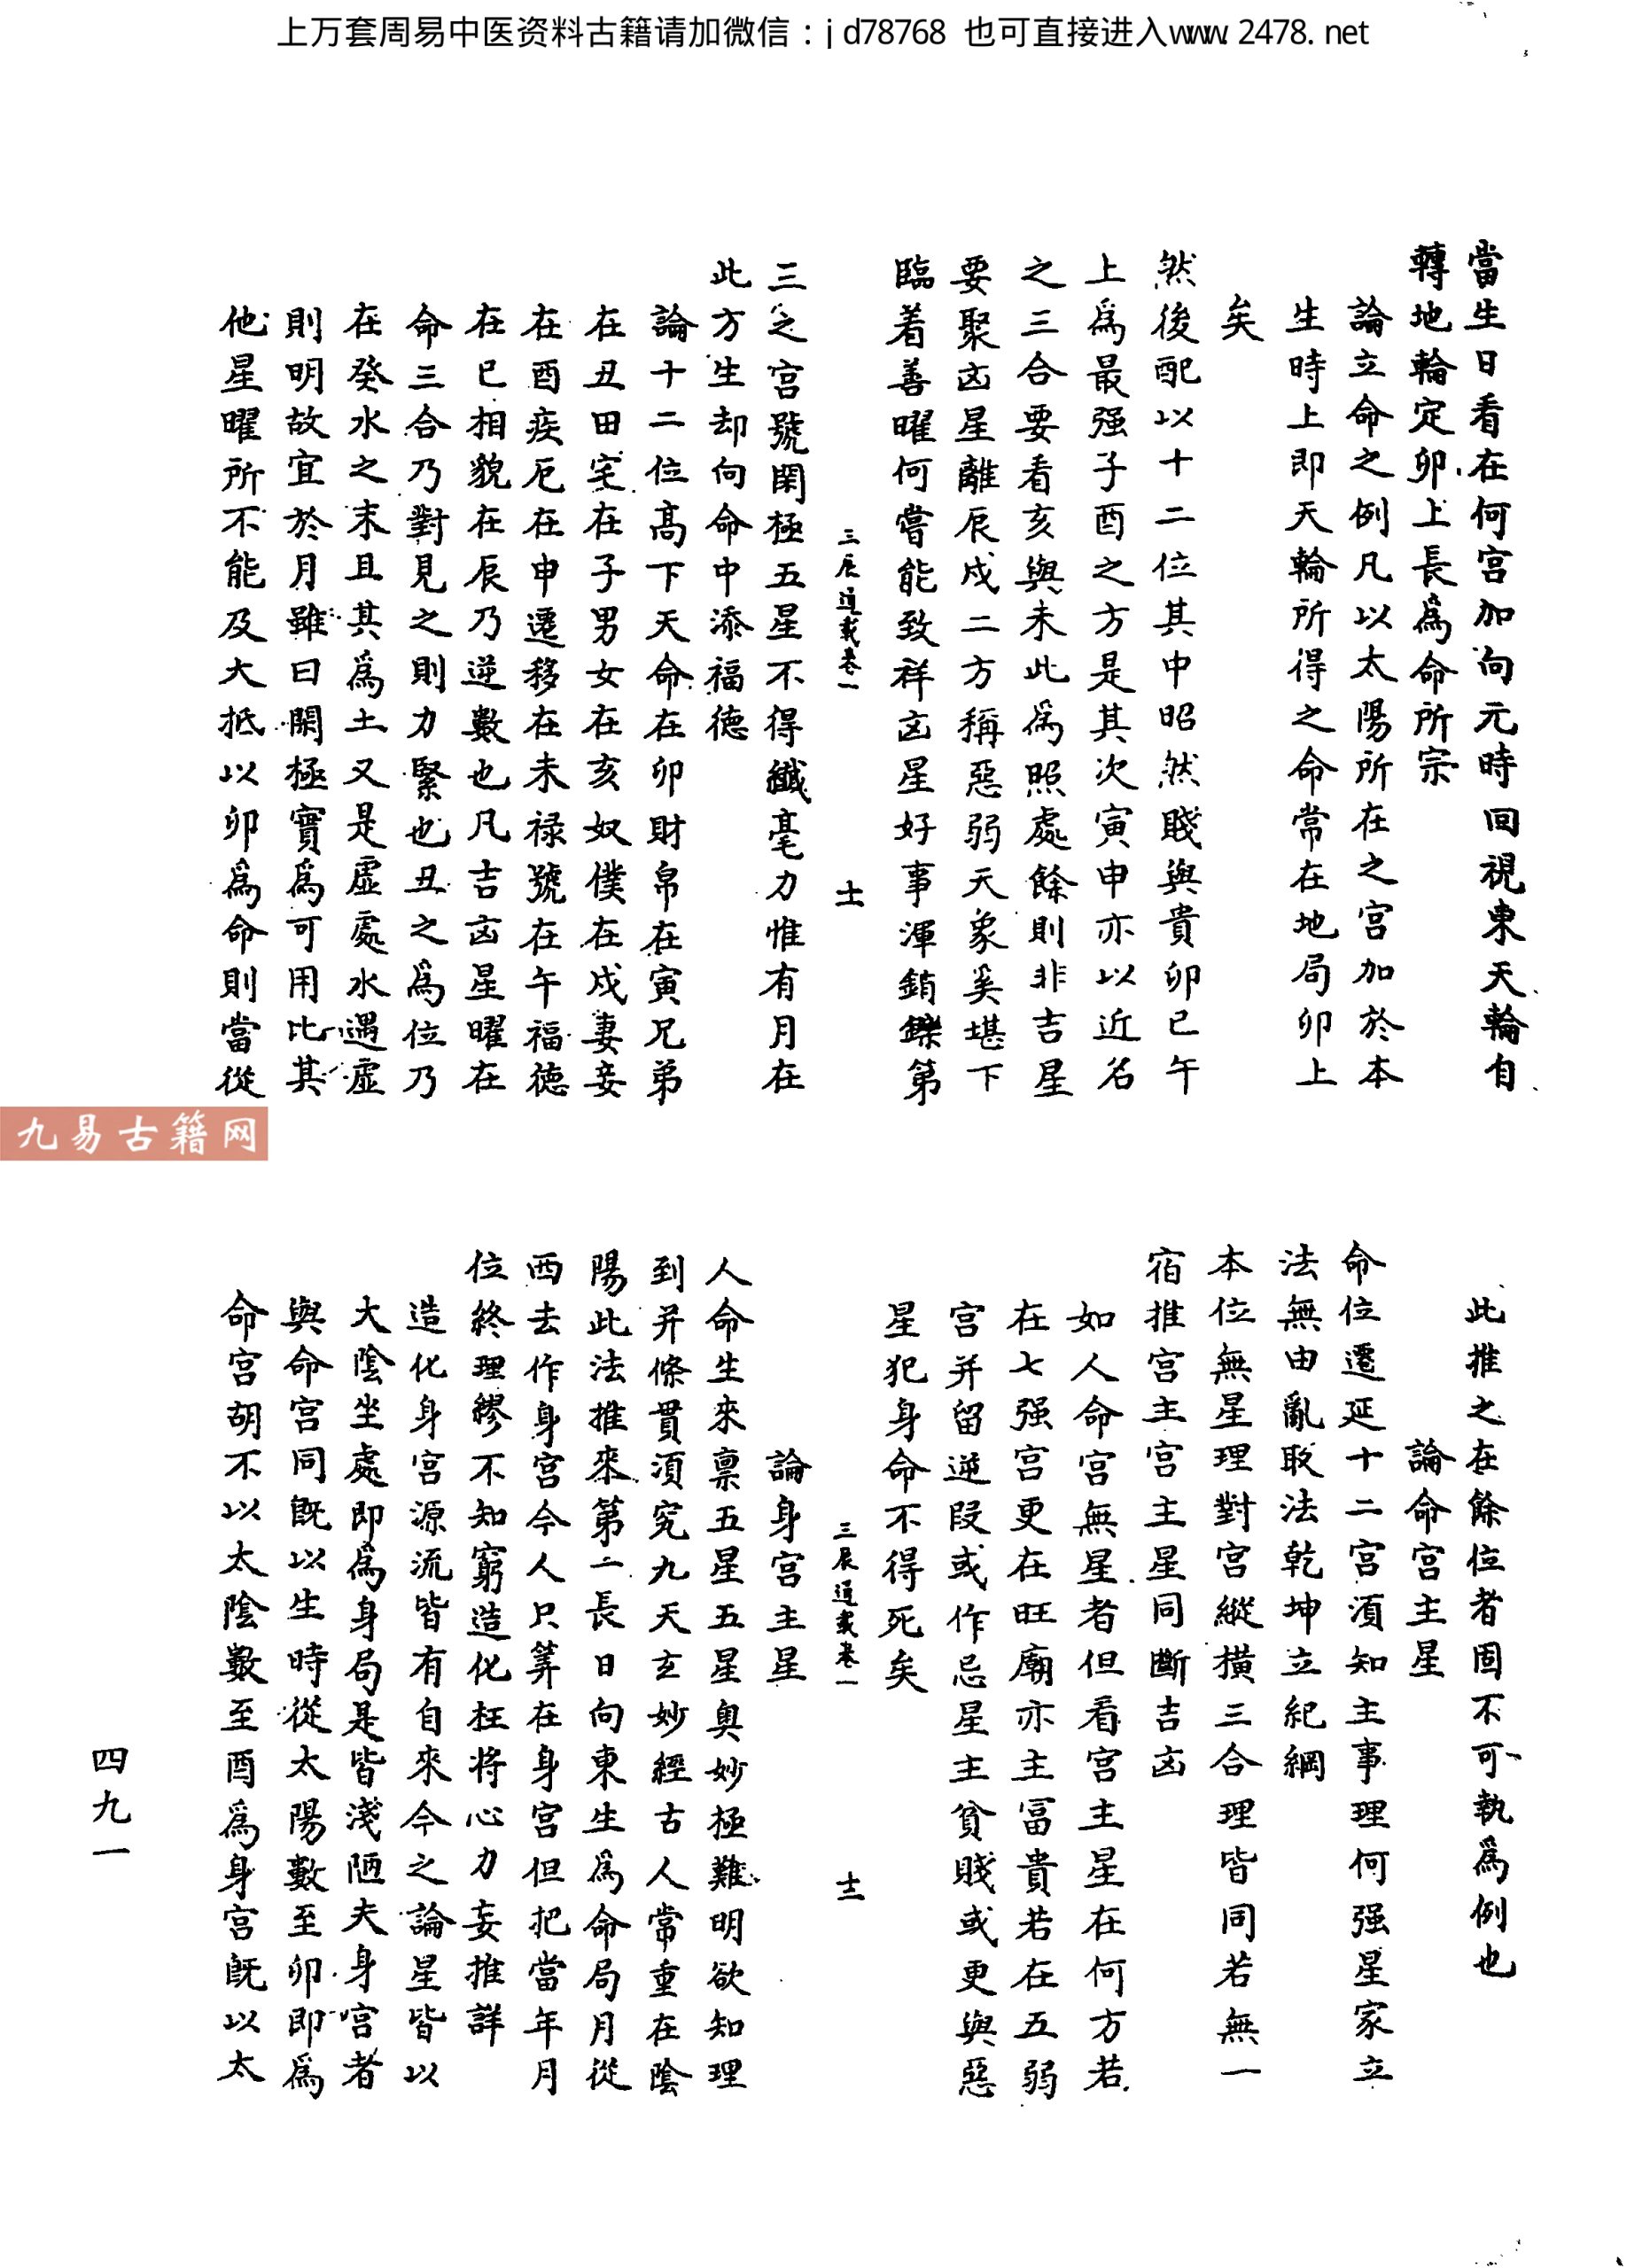 上万套周易中医资料古籍请加微信：jd78768 也可直接进入www.2478.net
當生日看在何宫加向元時回視東天輪自
轉地輪定卯上長爲命所宗
論立命之例凡以太陽所在之宫加於本
生時上即天輪所得之命常在地局卯上
矣
然後配以十二位其中昭然賤與貴卯已午
上爲最强子酉之方是其次寅申亦以近名
之三合要看亥與未此爲照處餘則非吉星
要聚凶星離辰戍二方稱惡弱天象奚堪下
臨着善曜何嘗能致祥凶星好事渾銷鑠第
三辰通載卷一
十一
三之宫號閑極五星不得纖毫力惟有月在
此方生却向命中添福德
論十二位高下天命在卯財帛在寅兄弟
在丑田宅在子男女在亥奴僕在戍妻妾
在酉疾厄在申遷移在未禄號在午福德
在已相貌在辰乃逆數也凡吉凶星曜在
命三合乃對見之則力緊也丑之爲位乃
在癸水之末且其爲土又是虚處水遇虚
則明故宜於月雖曰閑極實爲可用比其
他星曜所不能及大抵以卯爲命則當從
此推之在餘位者固不可執爲例也
論命宫主星
命位遷延十二宫湏知主事理何强星家立
法無由亂取法乾坤立紀綱
本位無星理對宫縱横三合理皆同若無一
宿推宫主宫主星同斷吉凶
如人命宫無星者但看宫主星在何方若
在七强宫更在旺廟亦主冨貴若在五弱
宫并留逆段或作忌星主貧賤或更與惡
星犯身命不得死矣
三辰通載卷一
十二
論身宫主星
人命生來禀五星五星奥妙極難明欲知理
到并條貫湏究九天玄妙經古人常重在陰
陽此法推來第一長日向東生爲命局月從
西去作身宫今人只筭在身宫但把當年月
位終理繆不知窮造化枉将心力妄推詳
造化身宫源流皆有自來今之論星皆以
大陰坐處即爲身局是皆淺陋夫身宫者
與命宫同既以生時從太陽數至卯即爲
命宫胡不以太陰數至酉爲身宫既以太
四九一
九易古籍网